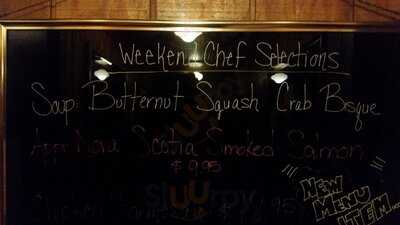 Weekend Chef Selections
Soup Butternut Squash Crab Bisque
App: Nova Scotia Smoked Salmon
$9.95
NEW
MENU
ITEM
Sluurpy